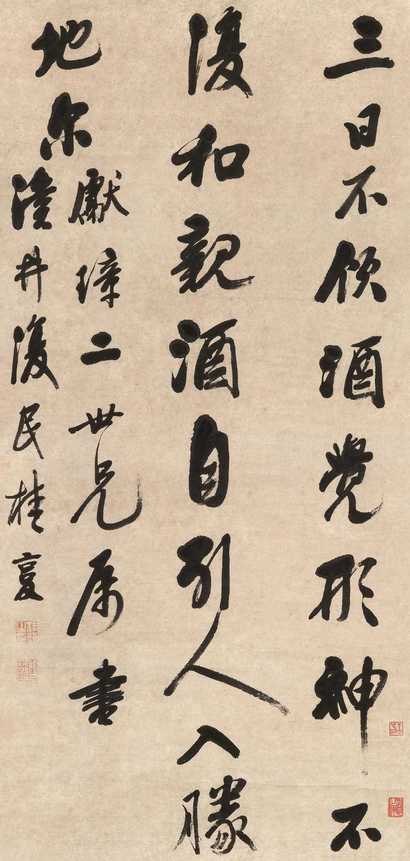 三日不飲酒覺形神不
復和親酒自引人入勝
地尔
獻璋二世兄属書
瀆井復民桂馥